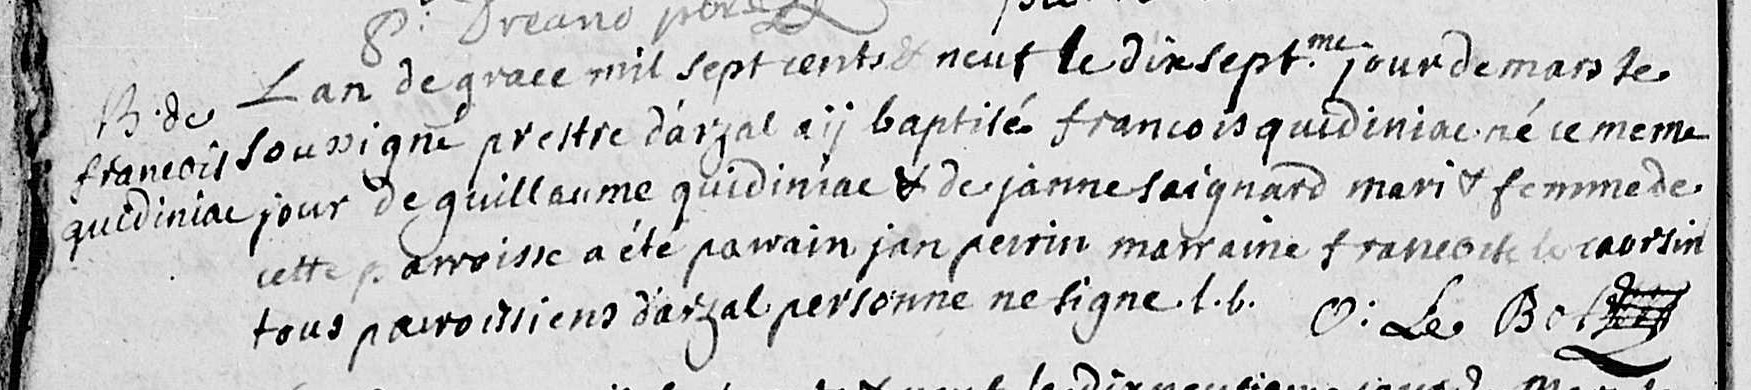 P: Dreano
B. de
francois
quidiniac
L an de grace mil sept cents & neuf le dixsept.me jour de mars je
soussigné prestre d'arzal aij baptisé francois quidiniac né ce meme
jour de guillaume quidiniac & de janne saignard mari & femme de
cette parroisse a été parrain jan perrin marraine francoise le caorsin
tous parroissiens d'arzal personne ne signe. l. b.
O: Le Bol